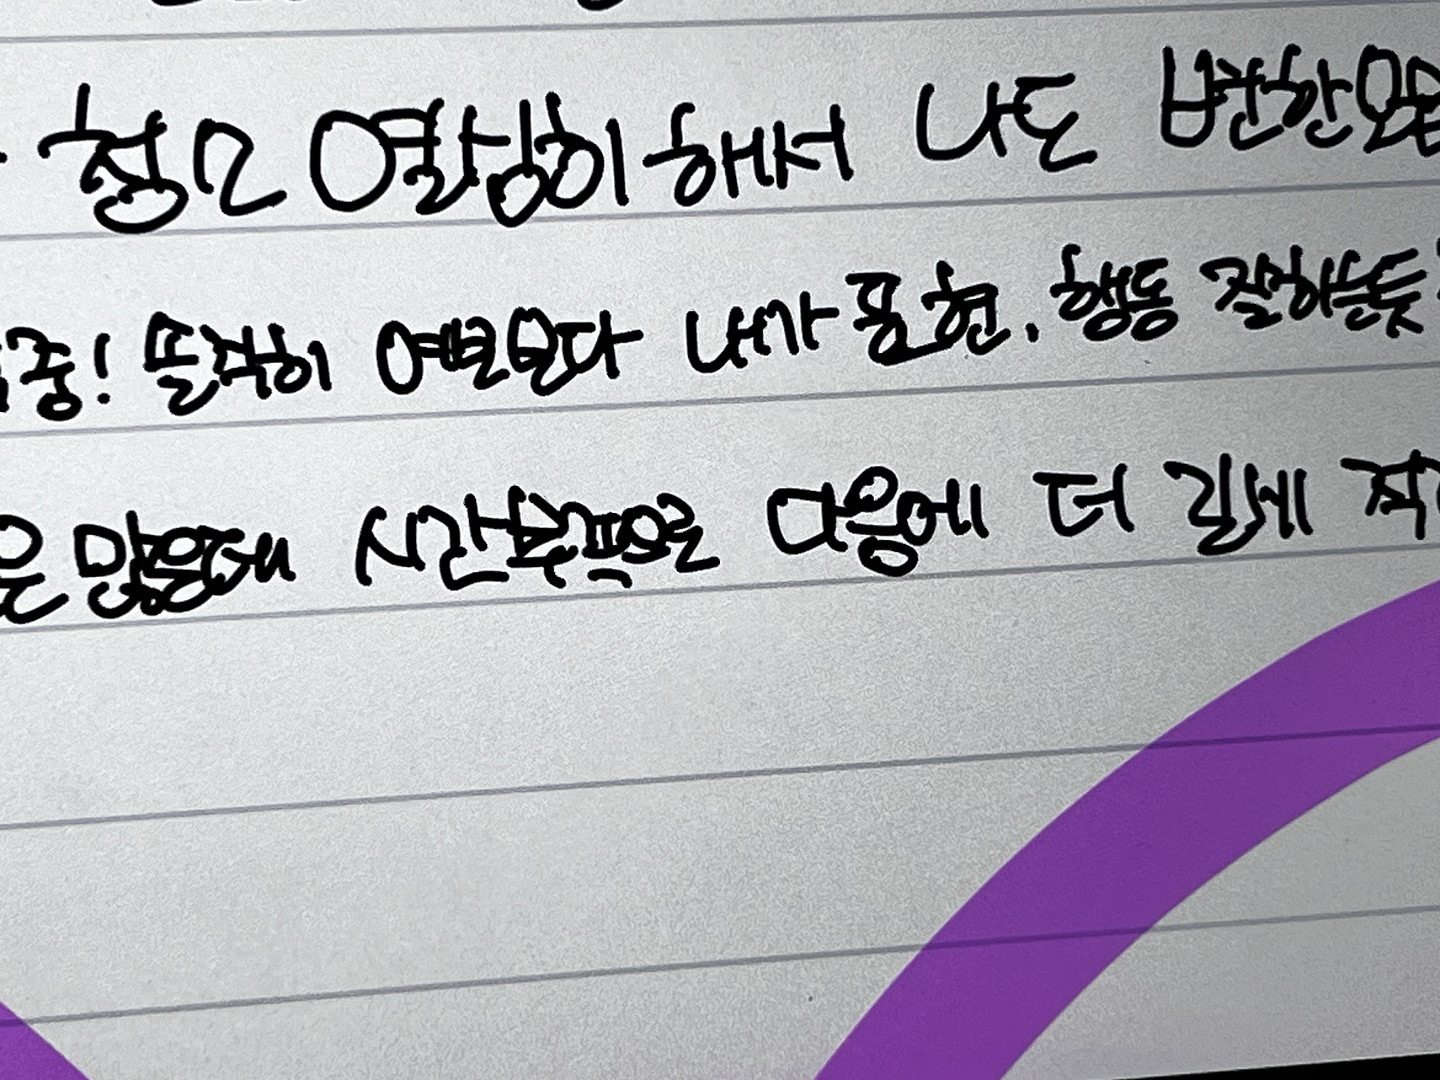 열심히 해서 나도 변한모
중! 솔직히 여보보다 내가 표현, 행동 잘하는듯
은 많은데 시간부족으로 다음에 더 길게 적